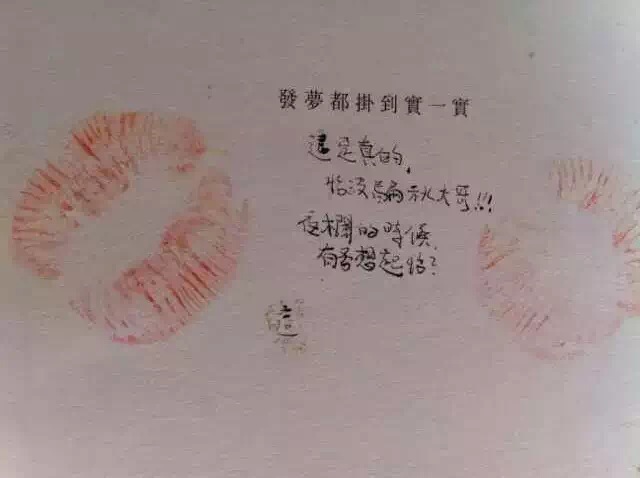 發夢都掛到實一實
這是真的,
怡沒騙秋大哥!!!
夜欄的時候,
有否想起怡?